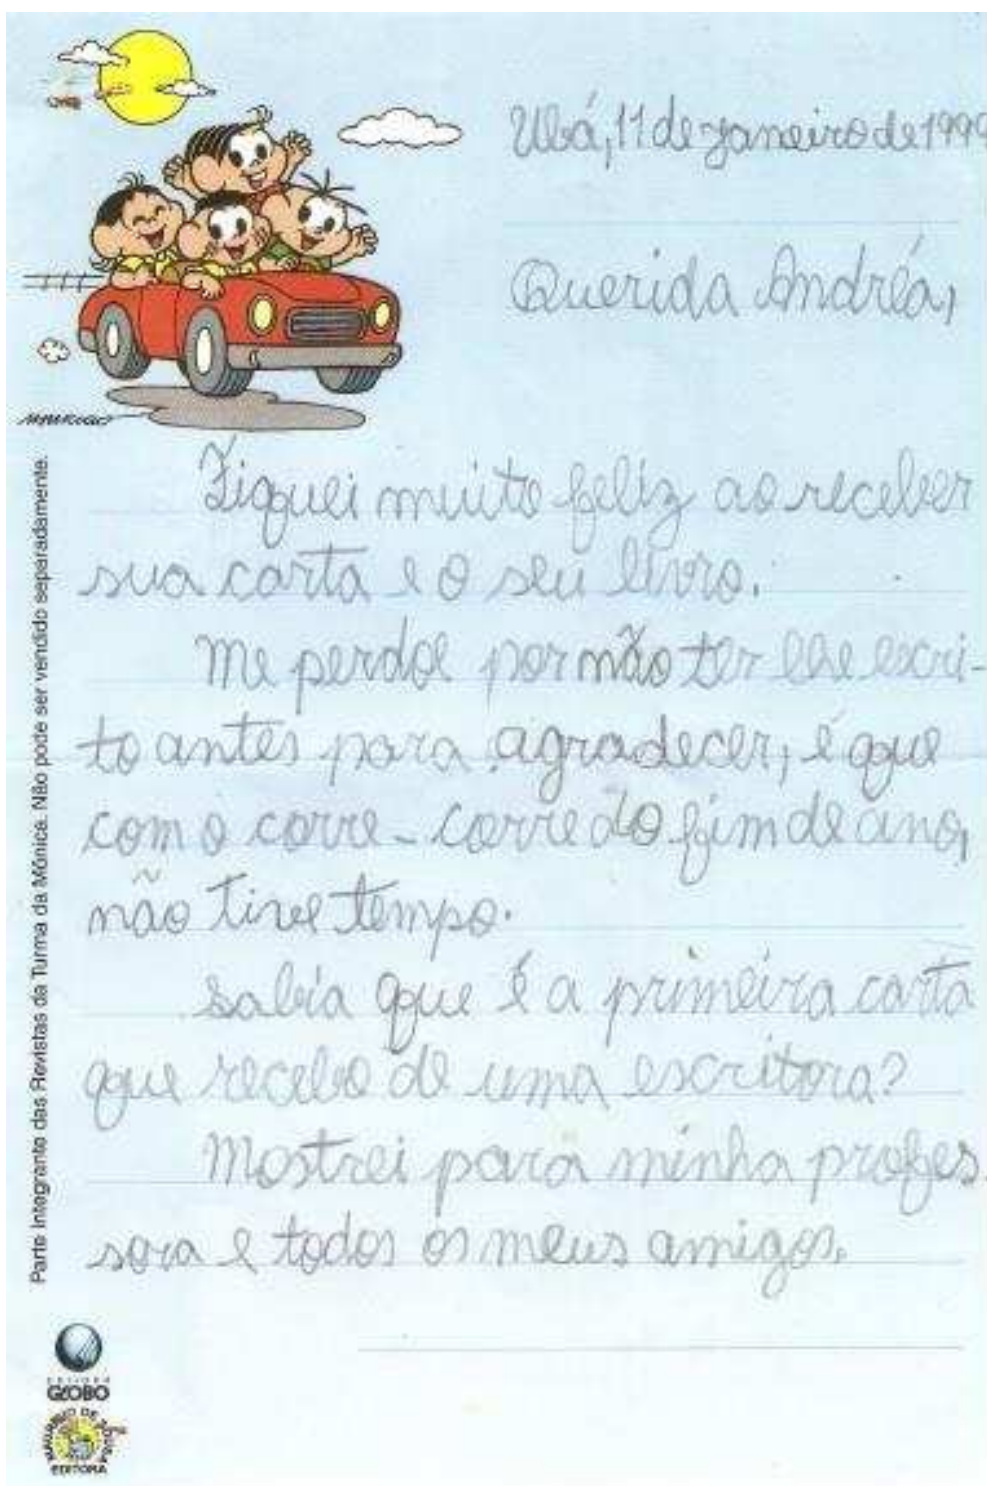 Ubá, 11 de janeiro de 1999
Querida Andréa,
Fiquei muito feliz ao receber
sua carta e o seu livro.
Me perdoe por não ter lhe escri-
to antes para agradecer, é que
com o corre-corre do fim de ano,
não tive tempo.
Sabia que é a primeira carta
que recebo de uma escritora?
Mostrei para minha profes
sora e todos os meus amigos.
Parte integrante das Revistas da Turma da Mônica. Não pode ser vendido separadamente.
EDITORA
GLOBO
MAURICIO DE SOUSA
EDITORA